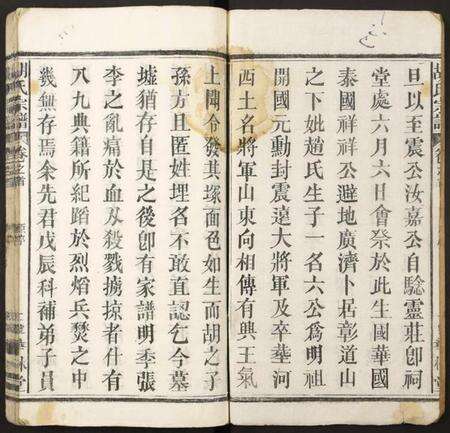 旦以至震公汝嘉公自騐靈莊卽祠
堂處六月六日會祭於此生國華國
泰國祥祥公避地廣濟卜居彰道山
之下妣趙氏生子一名六公爲明祖
開國元勳封震遠大將軍及卒葬河
西土名將軍山東向相傳有興王氣
上聞令發其塚面色如生而胡之子
孫方且匿姓埋名不敢直認乞今墓
墟猶存自是之後卽有家譜明季張
李之亂痛於血刄殺戮擄掠者什有
八九典籍所紀蹈於烈焰兵燹之中
幾無存焉余先君戊辰科補弟子員
胡氏宗譜